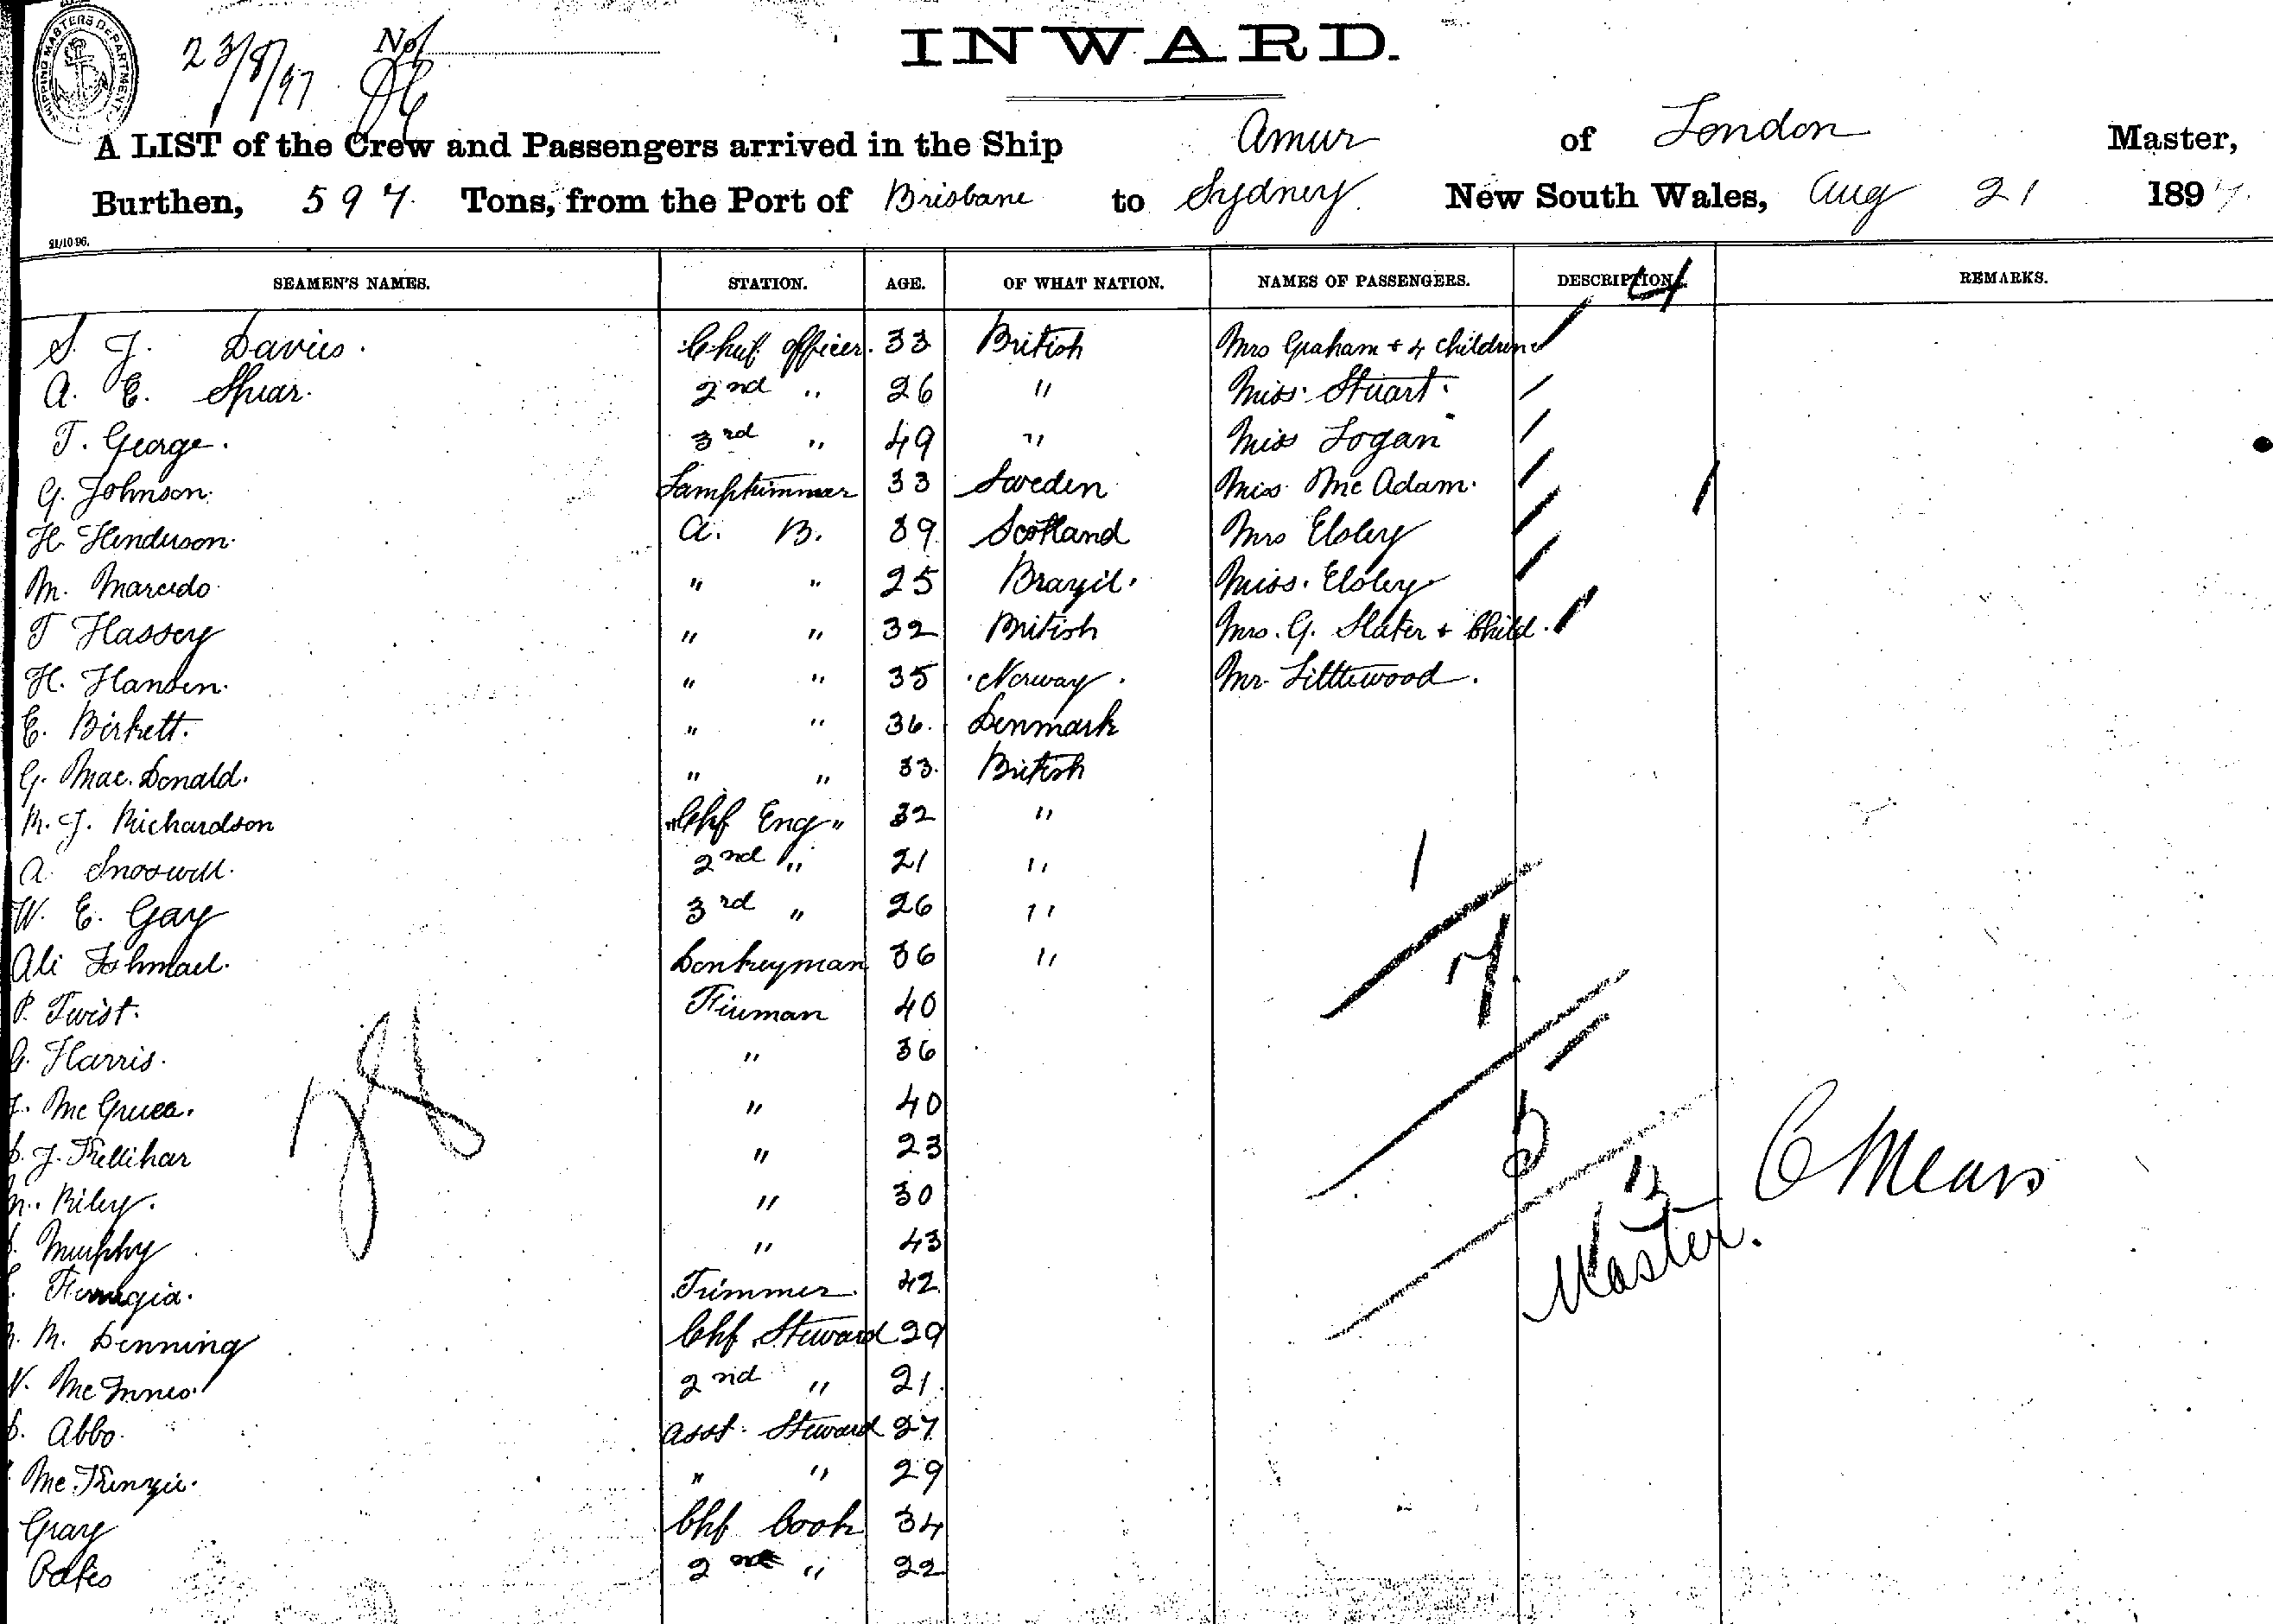 SHIPPING MASTERS DEPARTMENT
23/8/97 No.
INWARD.
A LIST of the Crew and Passengers arrived in the Ship Amur of London Master,
Burthen, 597 Tons, from the Port of Brisbane to Sydney New South Wales, Aug 21 1897.
21/10 96.
SEAMEN'S NAMES. STATION. AGE. OF WHAT NATION. NAMES OF PASSENGERS. DESCRIPTION. REMARKS.
S. J. Davies. Chief officer. 33 British Mrs Graham + 4 children
A. E. Spear. 2nd " 26 " Miss Stuart.
T. George. 3rd " 49 " Miss Logan
G. Johnson. Lamptrimmer 33 Sweden Miss McAdam.
H. Henderson. A. B. 39 Scotland Mrs Elsley
M. Marcedo. " " 25 Brazil. Miss. Elsley
T Hassey " " 32 British Mrs. G. Slater + Child.
H. Hansen. " " 35 Norway. Mr Littlewood.
E. Birkett. " " 36. Denmark
G. Mac. Donald. " " 33. British
R. J. Richardson Chf Eng 32 "
A. Snoswell. 2nd " 21 "
W. E. Gay 3rd " 26 "
Ali Ishmael. Donkeyman 36 "
P. Twist. Fireman 40
G. Harris. " 36
J. Mc " 40
D. J. Kellihar " 23
Riley. " 30
Murphy " 43
Trimmer. 42
M. Denning Chf Steward 29
Mc Innes. 2nd " 21
Abbo. Asst. Steward 27
Mc Kenzie. " " 29
Gray Chf Cook 34
2nd " 22
28
1
7
5
13
C Mears
Master.